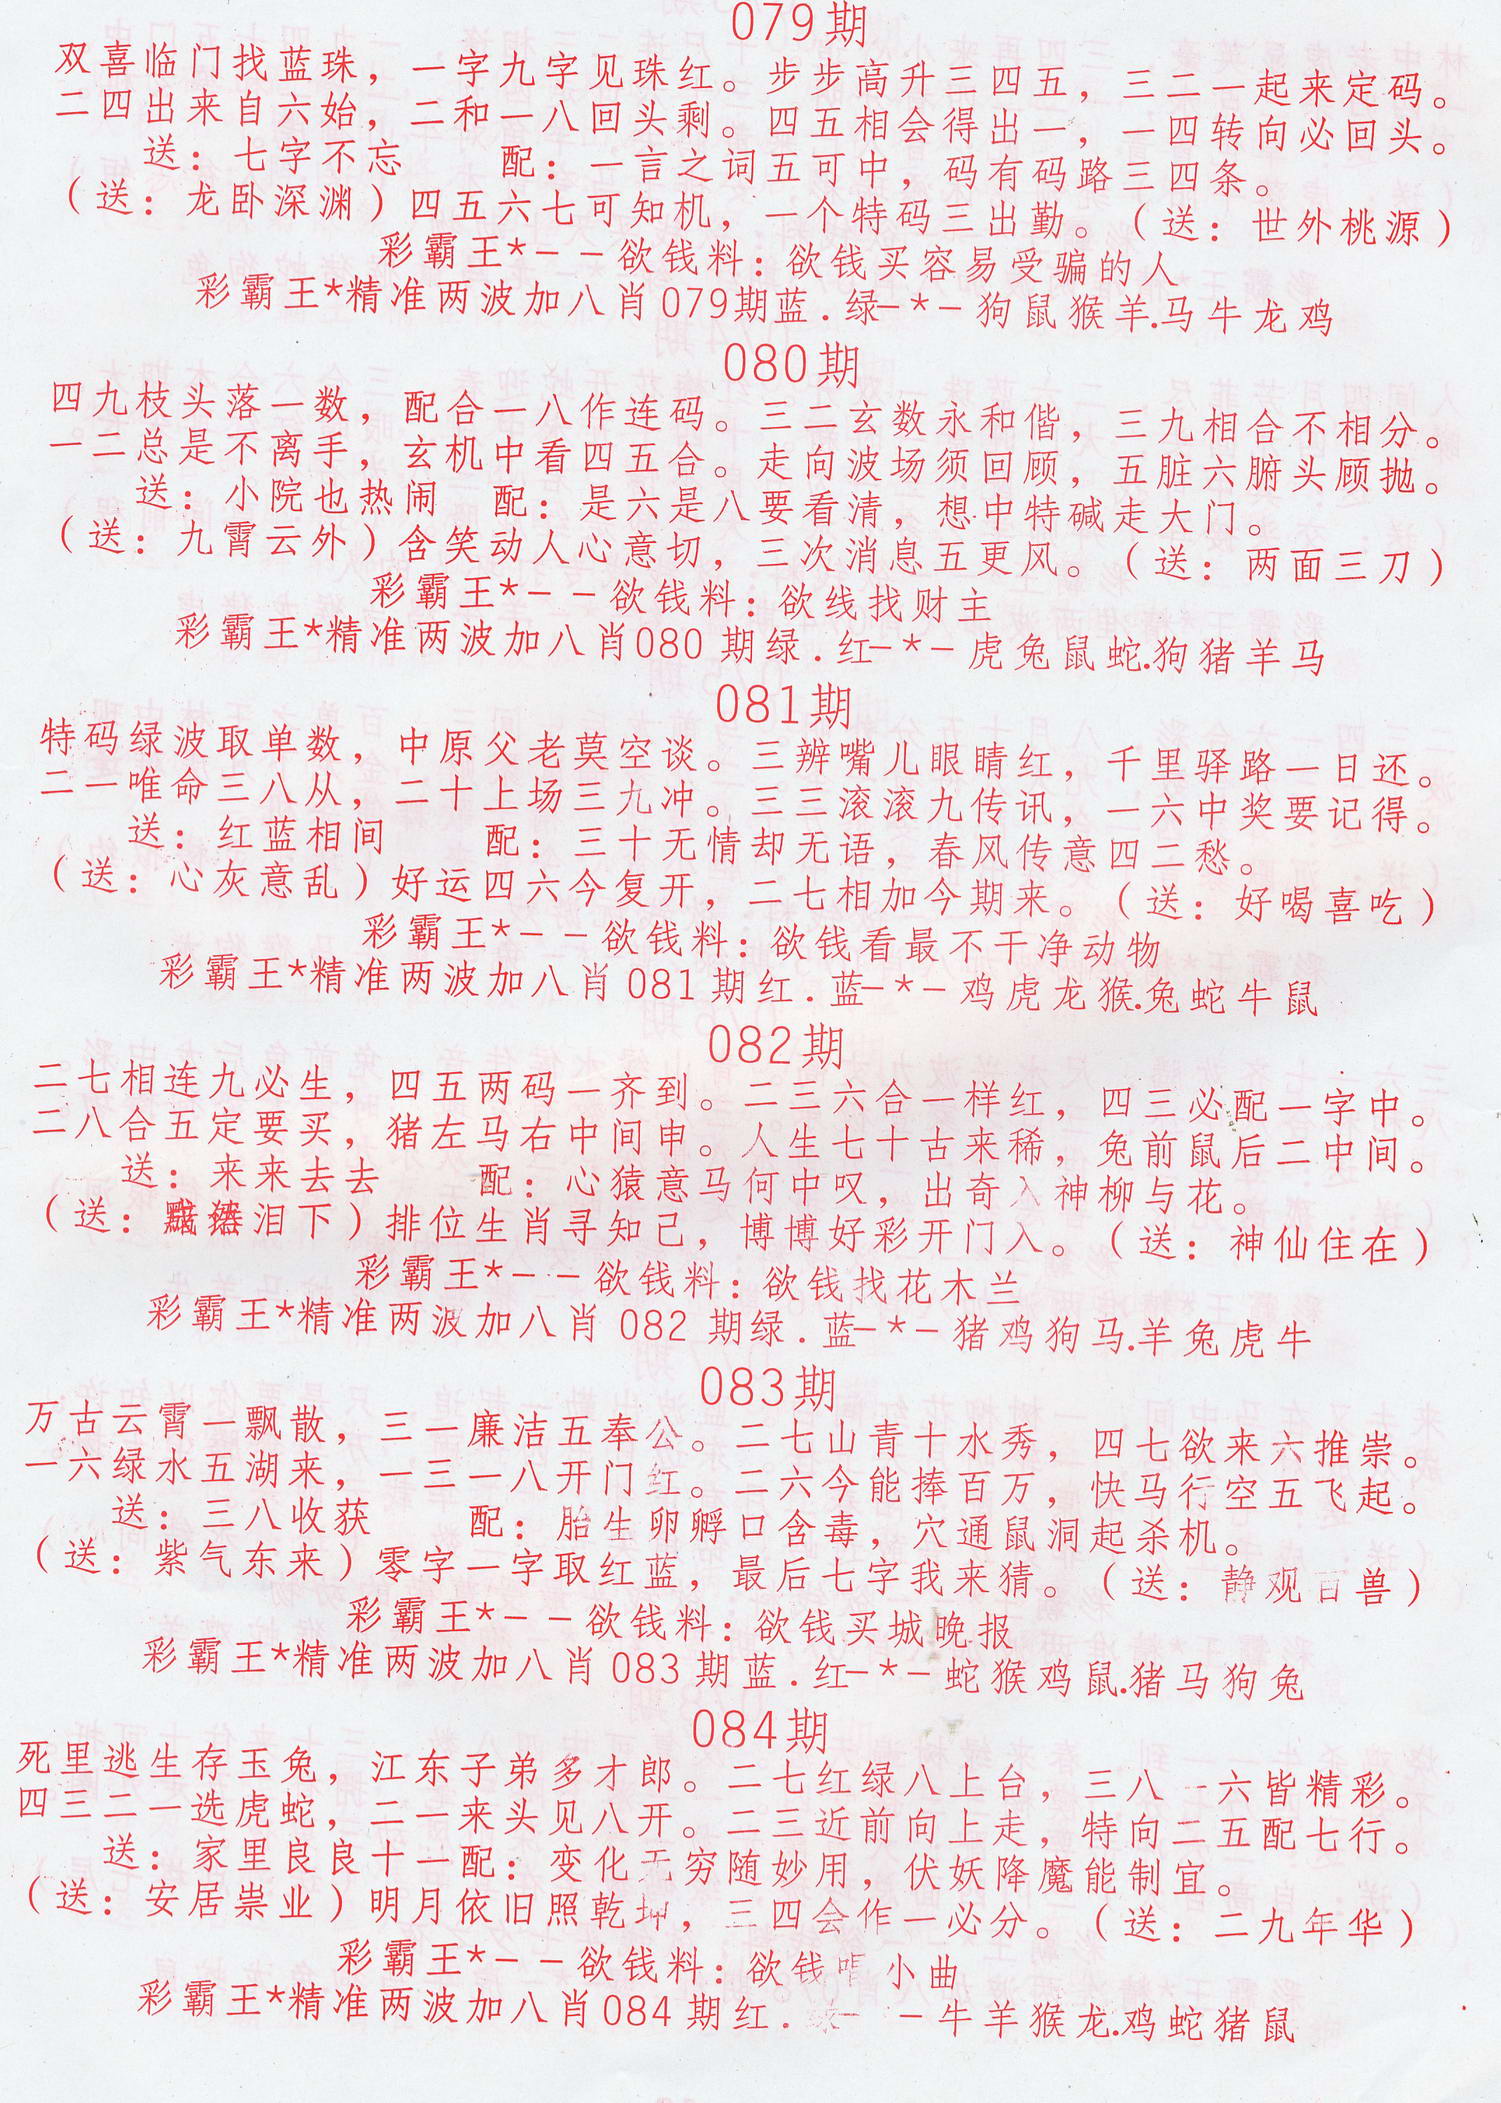 079期
双喜临门找蓝珠，一字九字见珠红。步步高升三四五，三二一起来定码。
二四出来自六始，二和一八回头剩。四五相会得出一，一四转向必回头。
送：七字不忘 配：一言之词五可中，码有码路三四条。
（送：龙卧深渊）四五六七可知机，一个特码三出勤。（送：世外桃源）
彩霸王*--欲钱料：欲钱买容易受骗的人
彩霸王*精准两波加八肖079期蓝.绿-*-狗鼠猴羊.马牛龙鸡
080期
四九枝头落一数，配合一八作连码。三二玄数永和偕，三九相合不相分。
一二总是不离手，玄机中看四五合。走向波场须回顾，五脏六腑头顾抛。
送：小院也热闹 配：是六是八要看清，想中特碱走大门。
（送：九霄云外）含笑动人心意切，三次消息五更风。（送：两面三刀）
彩霸王*--欲钱料：欲线找财主
彩霸王*精准两波加八肖080期绿.红-*-虎兔鼠蛇.狗猪羊马
081期
特码绿波取单数，中原父老莫空谈。三辨嘴儿眼睛红，千里驿路一日还。
二一唯命三八从，二十上场三九冲。三三滚滚九传讯，一六中奖要记得。
送：红蓝相间 配：三十无情却无语，春风传意四二愁。
（送：心灰意乱）好运四六今复开，二七相加今期来。（送：好喝喜吃）
彩霸王*--欲钱料：欲钱看最不干净动物
彩霸王*精准两波加八肖081期红.蓝-*-鸡虎龙猴.兔蛇牛鼠
082期
二七相连九必生，四五两码一齐到。二三六合一样红，四三必配一字中。
二八合五定要买，猪左马右中间申。人生七十古来稀，兔前鼠后二中间。
送：来来去去 配：心猿意马何中叹，出奇入神柳与花。
（送：泪下）排位生肖寻知己，博博好彩开门入。（送：神仙住在）
彩霸王*--欲钱料：欲钱找花木兰
彩霸王*精准两波加八肖082期绿.蓝-*-猪鸡狗马.羊兔虎牛
083期
万古云霄一飘散，三一廉洁五奉公。二七山青十水秀，四七欲来六推崇。
一六绿水五湖来，一三一八开门红。二六今能捧百万，快马行空五飞起。
送：三八收获 配：胎生卵孵口含毒，穴通鼠洞起杀机。
（送：紫气东来）零字一字取红蓝，最后七字我来猜。（送：静观百兽）
彩霸王*--欲钱料：欲钱买城晚报
彩霸王*精准两波加八肖083期蓝.红-*-蛇猴鸡鼠.猪马狗兔
084期
死里逃生存玉兔，江东子弟多才郎。二七红绿八上台，三八一六皆精彩。
四三二一选虎蛇，二一来头见八开。二三近前向上走，特向二五配七行。
送：家里良良十一配：变化无穷随妙用，伏妖降魔能制宜。
（送：安居祟业）明月依旧照乾坤，三四会作一必分。（送：二九年华）
彩霸王*--欲钱料：欲钱唱小曲
彩霸王*精准两波加八肖084期红.绿--牛羊猴龙.鸡蛇猪鼠